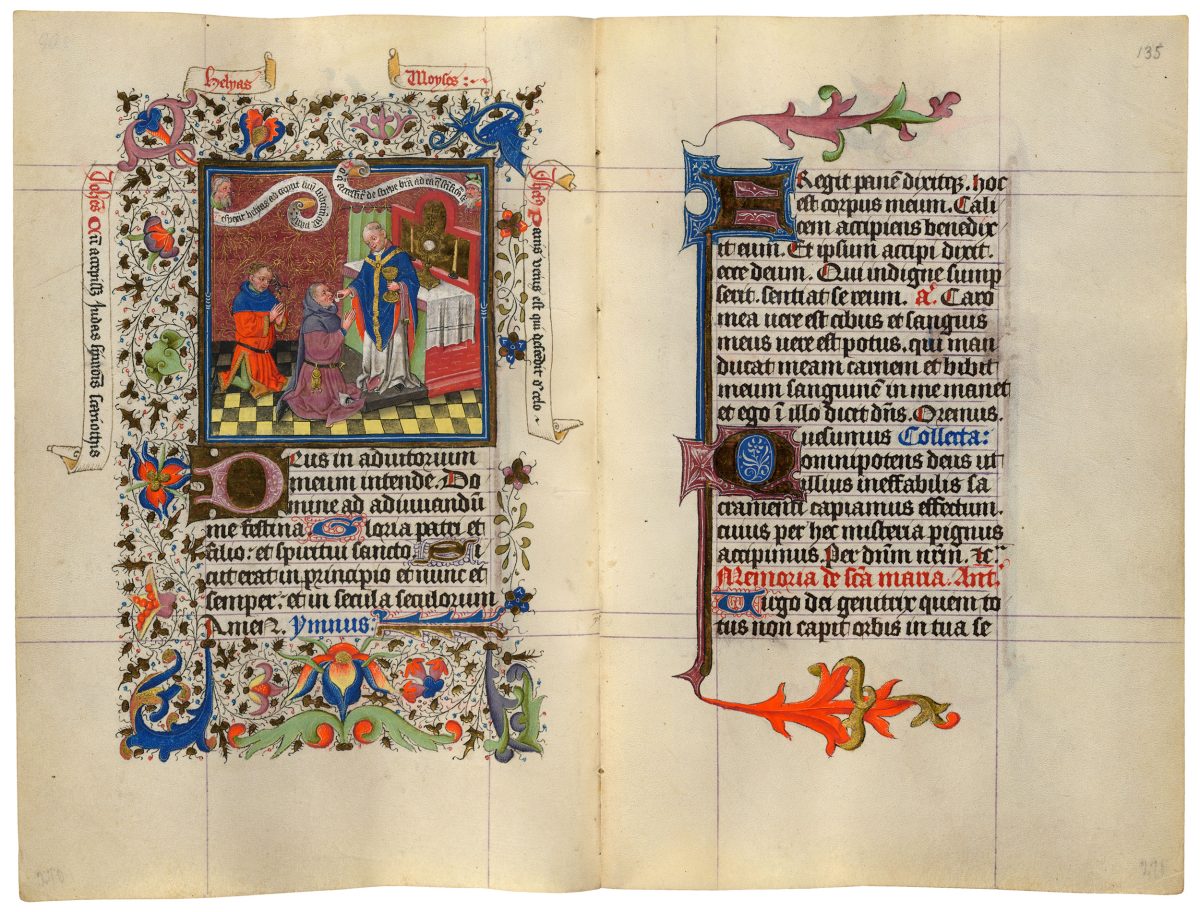 Helyas
Moyses:
Panis verus est qui descēdit d' celo
Deus in adiutorium
meum intende. Do
mine ad adiuuandū
me festina Gloria patri et
filio: et spiritui sancto Si
cut erat in principio et nunc et
semper: et in secula seculorum
Amen. ymnus:
135
Fregit panē dixitqȝ. hoc
est corpus meum. Cali
cem accipiens benedix
it eum. Et ipsum accipi dixit.
ecce deum. Qui indigne sump
serit. sentiat se reum. a͛. Caro
mea uere est cibus et sanguis
meus uere est potus. qui man
ducat meam carnem et bibit
meum sanguinē in me manet
et ego ī illo dicit dn̄s. Oremus.
Quesumus Collecta:
omnipotens deus ut
illius ineffabilis sa
cramenti capiamus effectum.
cuius per hec misteria pignus
accipimus. Per dn̄m nr̄m. ⁊c.
Memoria de sc̄a maria. Ant.
Virgo dei genitrix quem to
tus non capit orbis in tua se